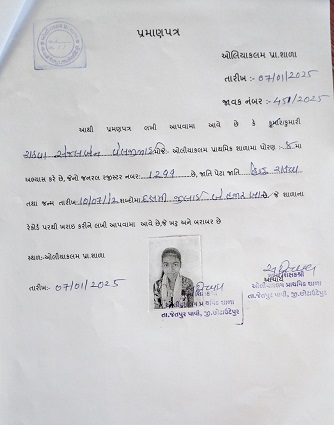 પ્રમાણપત્ર
ઓલિયાકલમ પ્રા.શાળા
તારીખ:- 07/01/2025
જાવક નંબર:- 451/2025
આથી પ્રમાણપત્ર લખી આપવામાં આવે છે કે કુમારી
રાઠવા ઓલિયાકલમ પ્રાથમિક શાળામાં ધોરણ : 8 માં
અભ્યાસ કરે છે, જેનો જનરલ રજીસ્ટર નંબર : 1299 છે. જાતિ પેટા જાતિ હિન્દુ રાઠવા
તથા જન્મ તારીખ 10/07/12 શબ્દોમાં દસમી જુલાઈ બે હજાર બાર છે. જે શાળાના
રેકોર્ડ પરથી ખરાઈ કરીને લખી આપવામાં આવે છે, જે ખરુ અને બરાબર છે
સ્થળ:-ઓલીયાકલમ પ્રા.શાળા
તારીખ:- 07/01/2025
આચાર્ય
ઓલીયાકલમ પ્રાથમિક શાળા
તા.જેતપુર પાવી, જી.છોટાઉદેપુર
પ્રાથમિક શાળા
તા.જેતપુર પાવી, જી.છોટાઉદેપુર